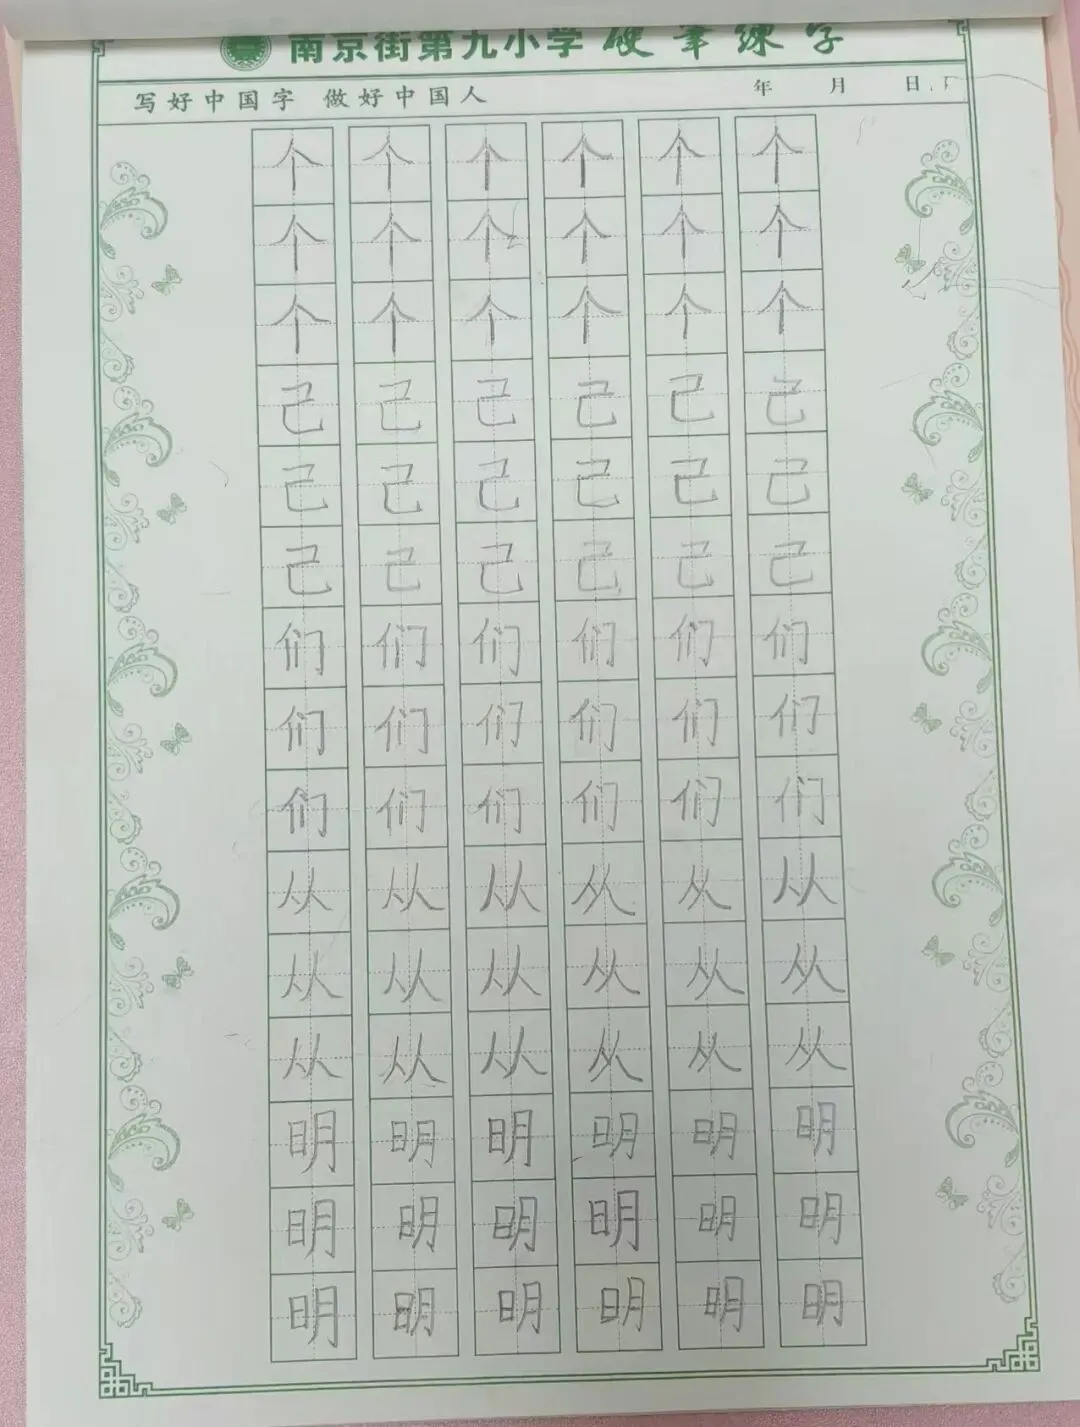 南京街第九小学硬笔练字
写好中国字 做好中国人 年 月 日
个 个 个 个 个 个
个 个 个 个 个 个
个 个 个 个 个 个
己 己 己 己 己 己
己 己 己 己 己 己
己 己 己 己 己 己
们 们 们 们 们 们
们 们 们 们 们 们
们 们 们 们 们 们
从 从 从 从 从 从
从 从 从 从 从 从
从 从 从 从 从 从
明 明 明 明 明 明
明 明 明 明 明 明
明 明 明 明 明 明